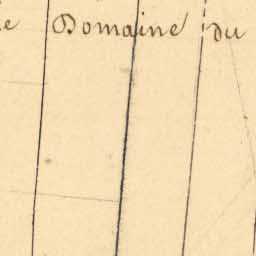 e Domaine du